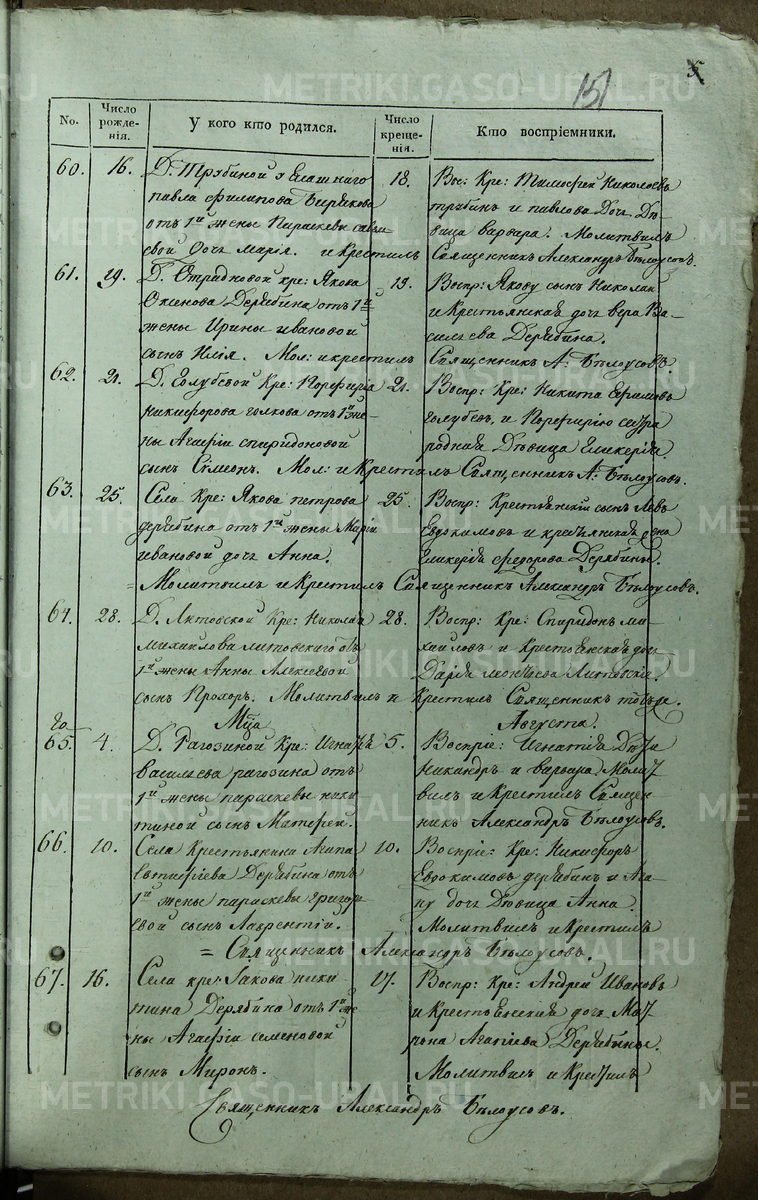 151
5
No.
Число рожде-нія.
У кого кто родился.
Число креще-нія.
Кто воспріемники.
60. 16. Д. Трубиной у
павла филипова
отъ 1й жены Параскевы
евой дочь Марія. и крестилъ
18. Вос: Кре: Тимофей Николаевъ
трубинъ и павлова дочь Дѣ-
вица варвара. Молитвилъ
Священникъ Александръ Бѣлоусовъ.
61. 19. Д. Отрадновой кре: Якова
Оксенова Дерябина отъ 1й
жены Ирины ивановой
сынъ Илія. Мол: и крестилъ
19. Воспр: Якову сынъ Николай
и Крестьянская дочь вера Ва-
сильева Дерябина.
Священникъ А: Бѣлоусовъ
62. 21. Д. Голубевой Кре: Порфирія
никифорова голкова отъ 1й же-
ны Агафіи спиридоновой
сынъ Сѵмеонъ. Мол: и Крестилъ Священникъ А: Бѣлоусовъ.
21. Воспр: Кре: Никита Ефимовъ
голубевъ, и Порфирію сестра
родная Дѣвица Гликерія.
63. 25. Села Кре: Якова петрова
дерябина отъ 1й жены Маріи
ивановой дочь Анна.
25. Воспр: Крестьянскій сынъ Левъ
Евдокимовъ и крестьянская жена
Гликерія федорова Дерябины.
= Молитвилъ и Крестилъ Священникъ Александръ Бѣлоусовъ.
64. 28. Д. Литовской Кре: Николая
михайлова литовскаго отъ
1й жены Анны Алексеевой
сынъ Прохоръ. Молитвилъ и Крестилъ Священникъ тотъ же.
28. Воспр: Кре: Спиридонъ ми-
хайловъ и Крестьянская дочь
Дарія леонтьева Литовскіе.
Мца Августа.
го
65. 4. Д. Рагозиной Кре: Игнатія
васильева рагозина отъ
1й жены параскевы ники-
тиной сынъ Матфей.
5. Воспріе: Игнатія Дѣти
Никандръ и варвара. Молит-
вилъ и Крестилъ Священ-
никъ Александръ Бѣлоусовъ.
66. 10. Села Крестьянина Агапа
Евтифіева Дерябина отъ
1й жены параскевы григорь-
евой сынъ Лаврентій.
10. Воспріе: Кре: Никифоръ
Евдокимовъ дерябинъ и Ага-
пу дочь Дѣвица Анна.
Молитвилъ и Крестилъ
= Священникъ Александръ Бѣлоусовъ.
67. 16. Села кре: Іакова ники-
тина Дерябина отъ 1й же-
ны Агафіи семеновой
сынъ Миронъ.
17. Воспр: Кре: Андрей Ивановъ
и Крестьянская дочь Мат-
рона Агапіева Дерябины.
Молитвилъ и Крестилъ
Священникъ Александръ Бѣлоусовъ.
METRIKI.GASO-URAL.RU